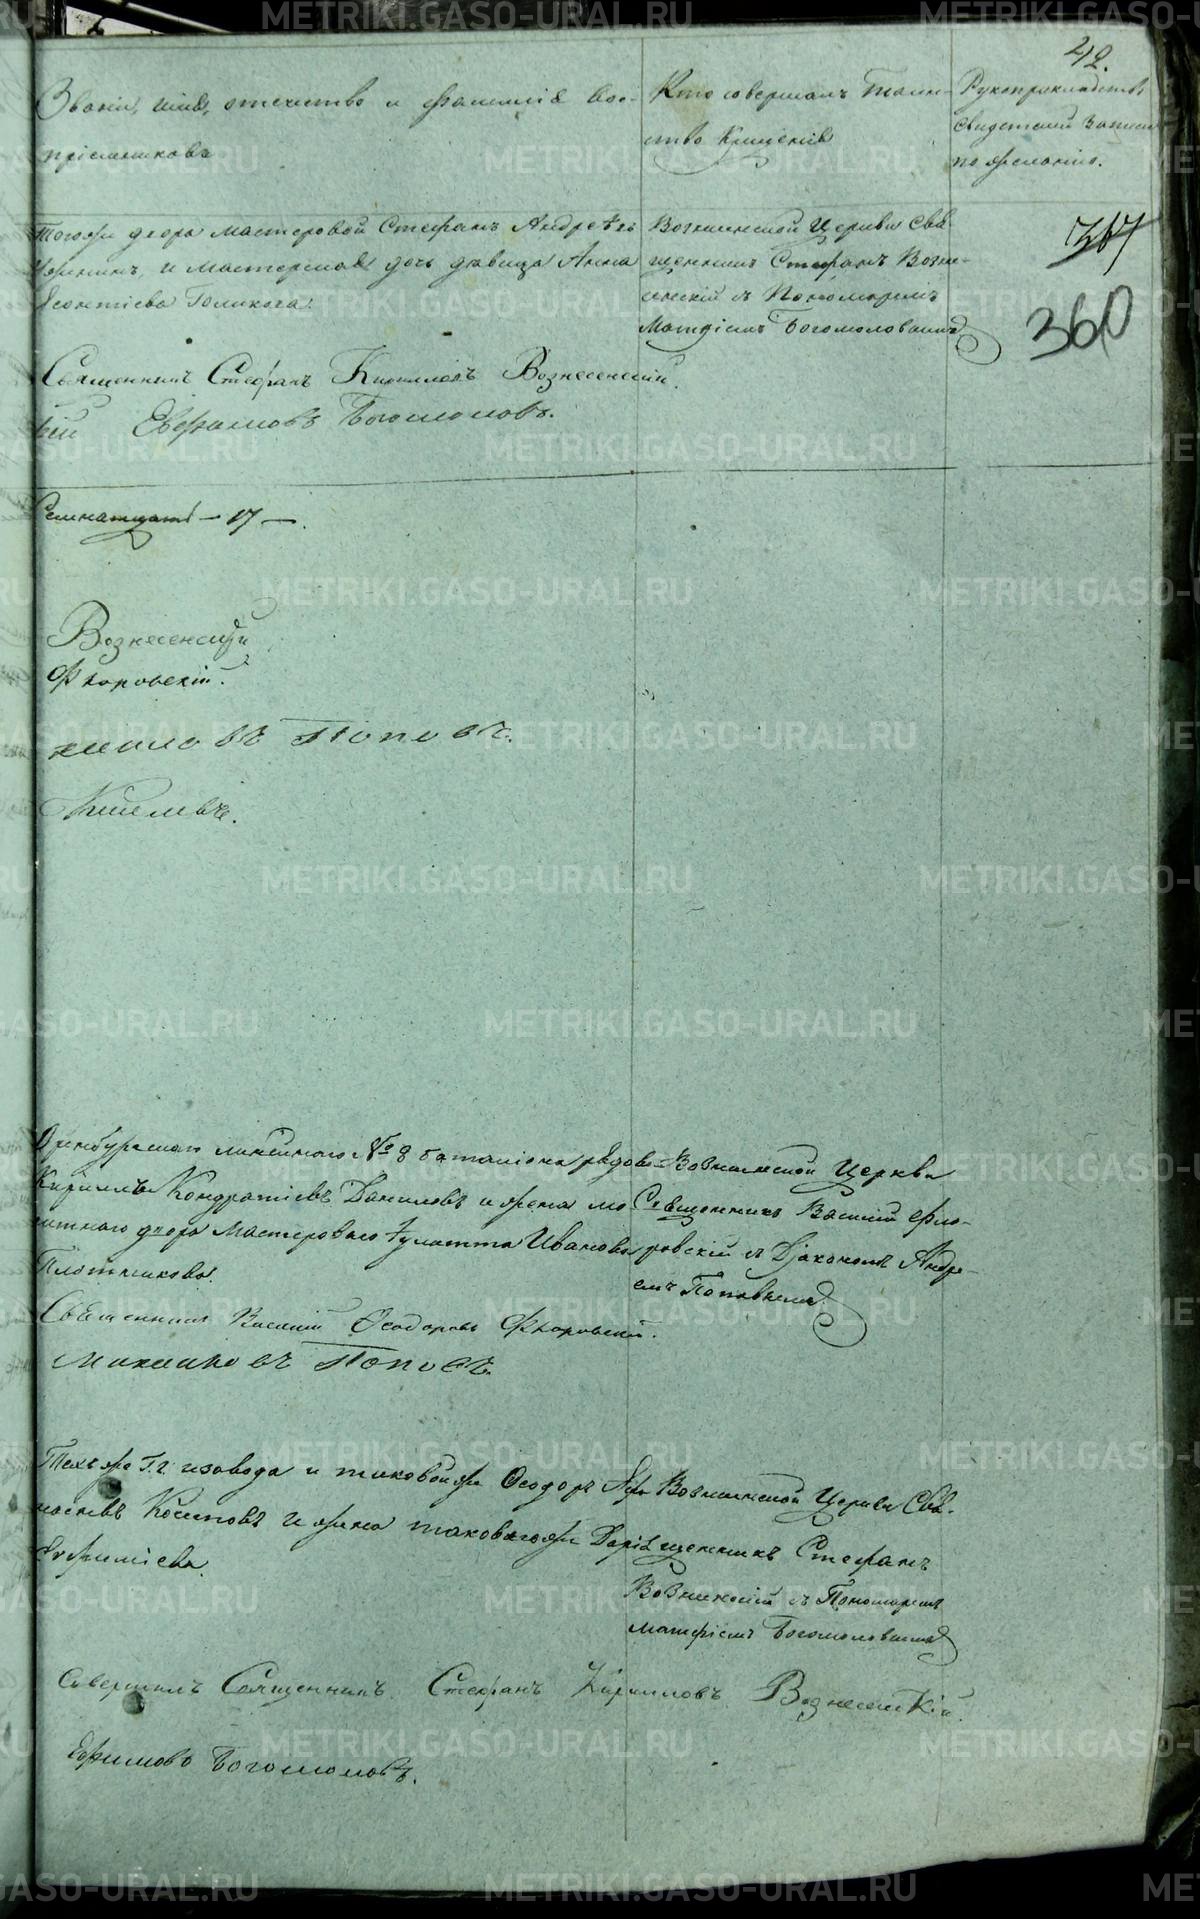 42.
Званіе, имя, отечество и фамилія вос-
пріемниковъ
Кто совершалъ таин-
ство Крещенія
Рукоприкладство
свидетелей записи
по желанію.
Тогоже двора мастеровой Стефанъ Андреевъ
и мастерская дочь девица Анна
Леонтіева Голикова.
Вознесенской Церкви Свя-
щенникъ Стефанъ Возне-
сенскій съ Пономаремъ
Матфіемъ Богомоловымъ
367
360
Священникъ Стефанъ Кирилловъ Вознесенскій.
Ефимовъ Богомоловъ.
Семнатцать — 17 —.
Вознесенскій
Флоровскій.
Поповъ.
Оренбурскаго линейнаго № 8 баталіона рядовой
Кириллъ Кондратіевъ Даниловъ и жена мо-
нетнаго двора мастероваго Иванова
Плотникова.
Вознесенской Церкви
Священникъ Василій Фло-
ровскій съ Діакономъ Андре-
емъ Поповымъ
Священникъ Василій Феодоровъ Флоровскій.
Михаиловъ Поповъ.
Техъ же завода и таковой же Феодоръ
и жена таковаго же Дарія
Ефиміева.
Вознесенской Церкви Свя-
щенникъ Стефанъ
Вознесенскій съ Пономаремъ
Матфіемъ Богомоловымъ
Совершилъ Священникъ Стефанъ Кирилловъ Вознесенскій.
Ефимовъ Богомоловъ.
METRIKI.GASO-URAL.RU